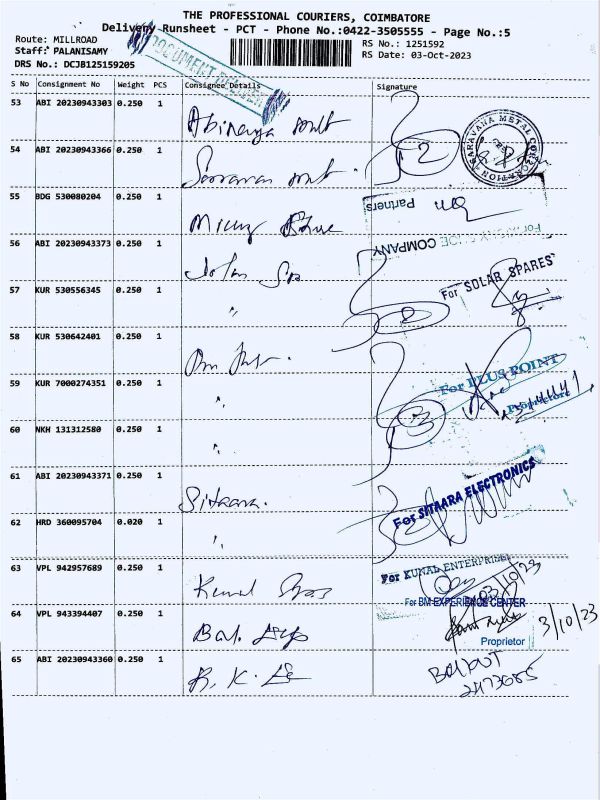 THE PROFESSIONAL COURIERS, COIMBATORE
Delivery Runsheet - PCT - Phone No.:0422-3505555 - Page No.:5
Route: MILLROAD
RS No.: 1251592
Staff: PALANISAMY
RS Date: 03-Oct-2023
DRS No.: DCJB125159205
DOCUMENT
S No Consignment No Weight PCS Consignee Details Signature
53 ABI 20230943303 0.250 1
54 ABI 20230943366 0.250 1 2
SARAVANA METAL CORPORATION
55 BDG 530080204 0.250 1
Partners
COMPANY
56 ABI 20230943373 0.250 1
57 KUR 530556345 0.250 1 "
For SOLAR SPARES
58 KUR 530642401 0.250 1
59 KUR 7000274351 0.250 1 " 3
For PLUS POINT
Proprietor
60 NKH 131312580 0.250 1 "
61 ABI 20230943371 0.250 1 Sitaara.
For SITAARA ELECTRONICS
62 HRD 360095704 0.020 1 " 2
63 VPL 942957689 0.250 1 Kunal
For KUNAL ENTERPRISES
03/10/23
64 VPL 943394407 0.250 1 Bal.
For BM EXPERIENCE CENTER
Proprietor
3/10/23
65 ABI 20230943360 0.250 1 R. K.